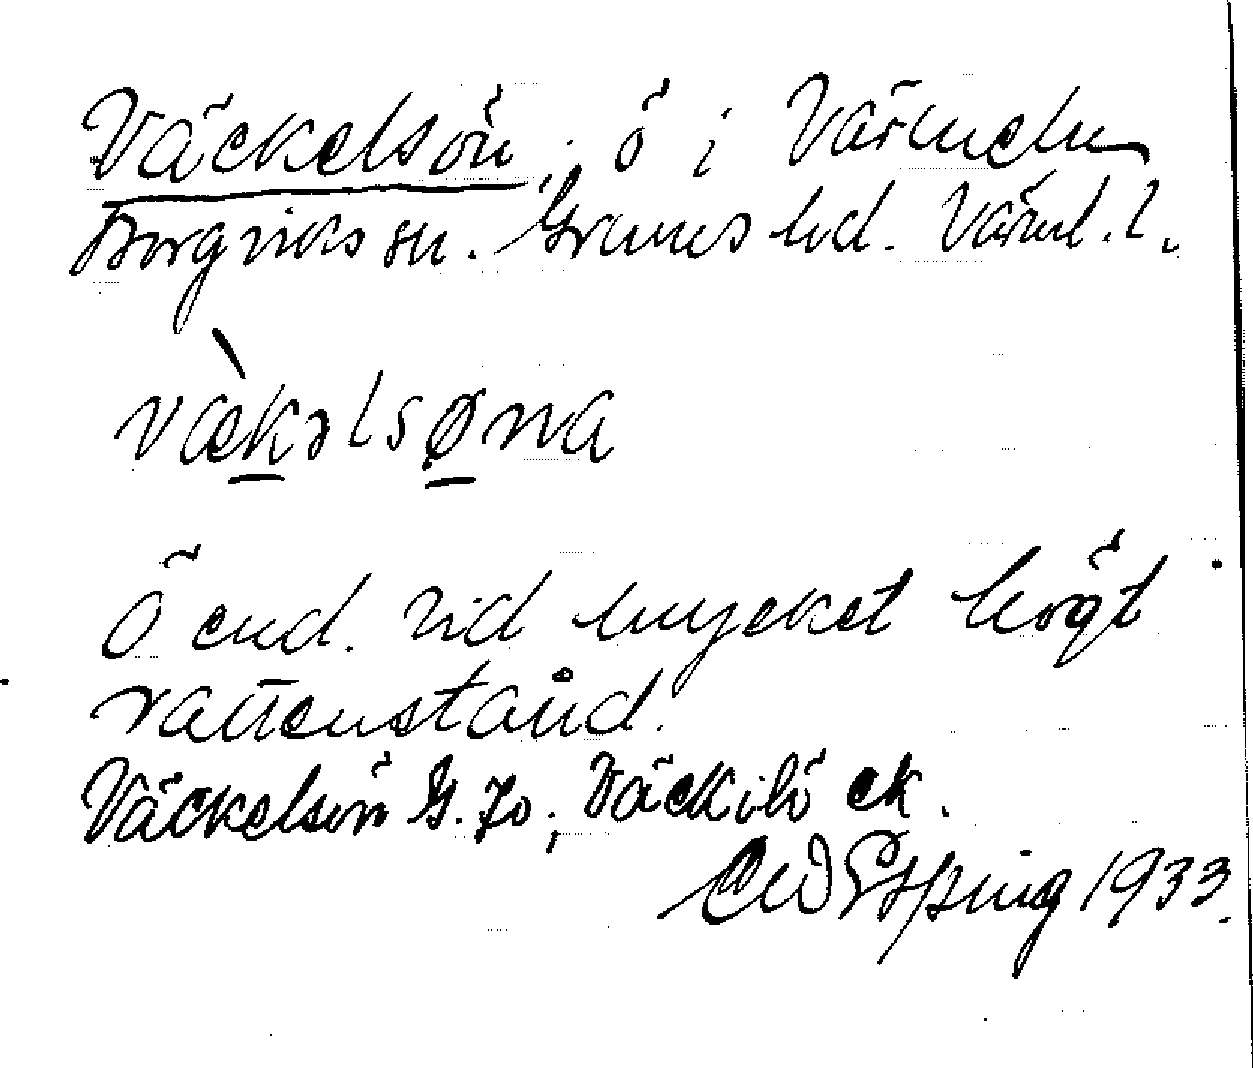 Väckelsön, ö i Värmeln
Borgviks sn. Grums hd. Värml. l.
væ̀kəlsøna
Ö end. vid mycket högt
vattenstånd.
Väckelsön G. Jo; Väckilö ek.
Espling 1933.